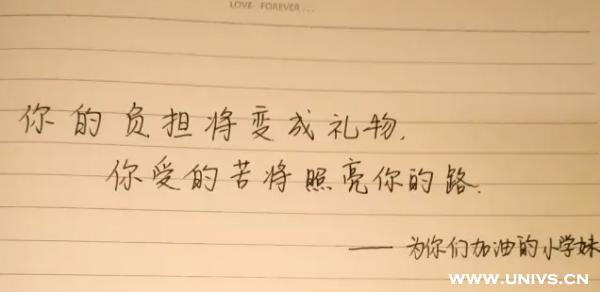 LOVE FOREVER...
你的负担将变成礼物.
你受的苦将照亮你的路.
——为你们加油的小学妹
WWW.UNIVS.CN